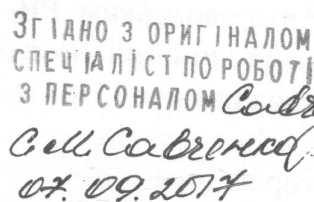 ЗГІДНО З ОРИГІНАЛОМ
СПЕЦІАЛІСТ ПО РОБОТІ
З ПЕРСОНАЛОМ
С.М. Савченко
07.09.2017